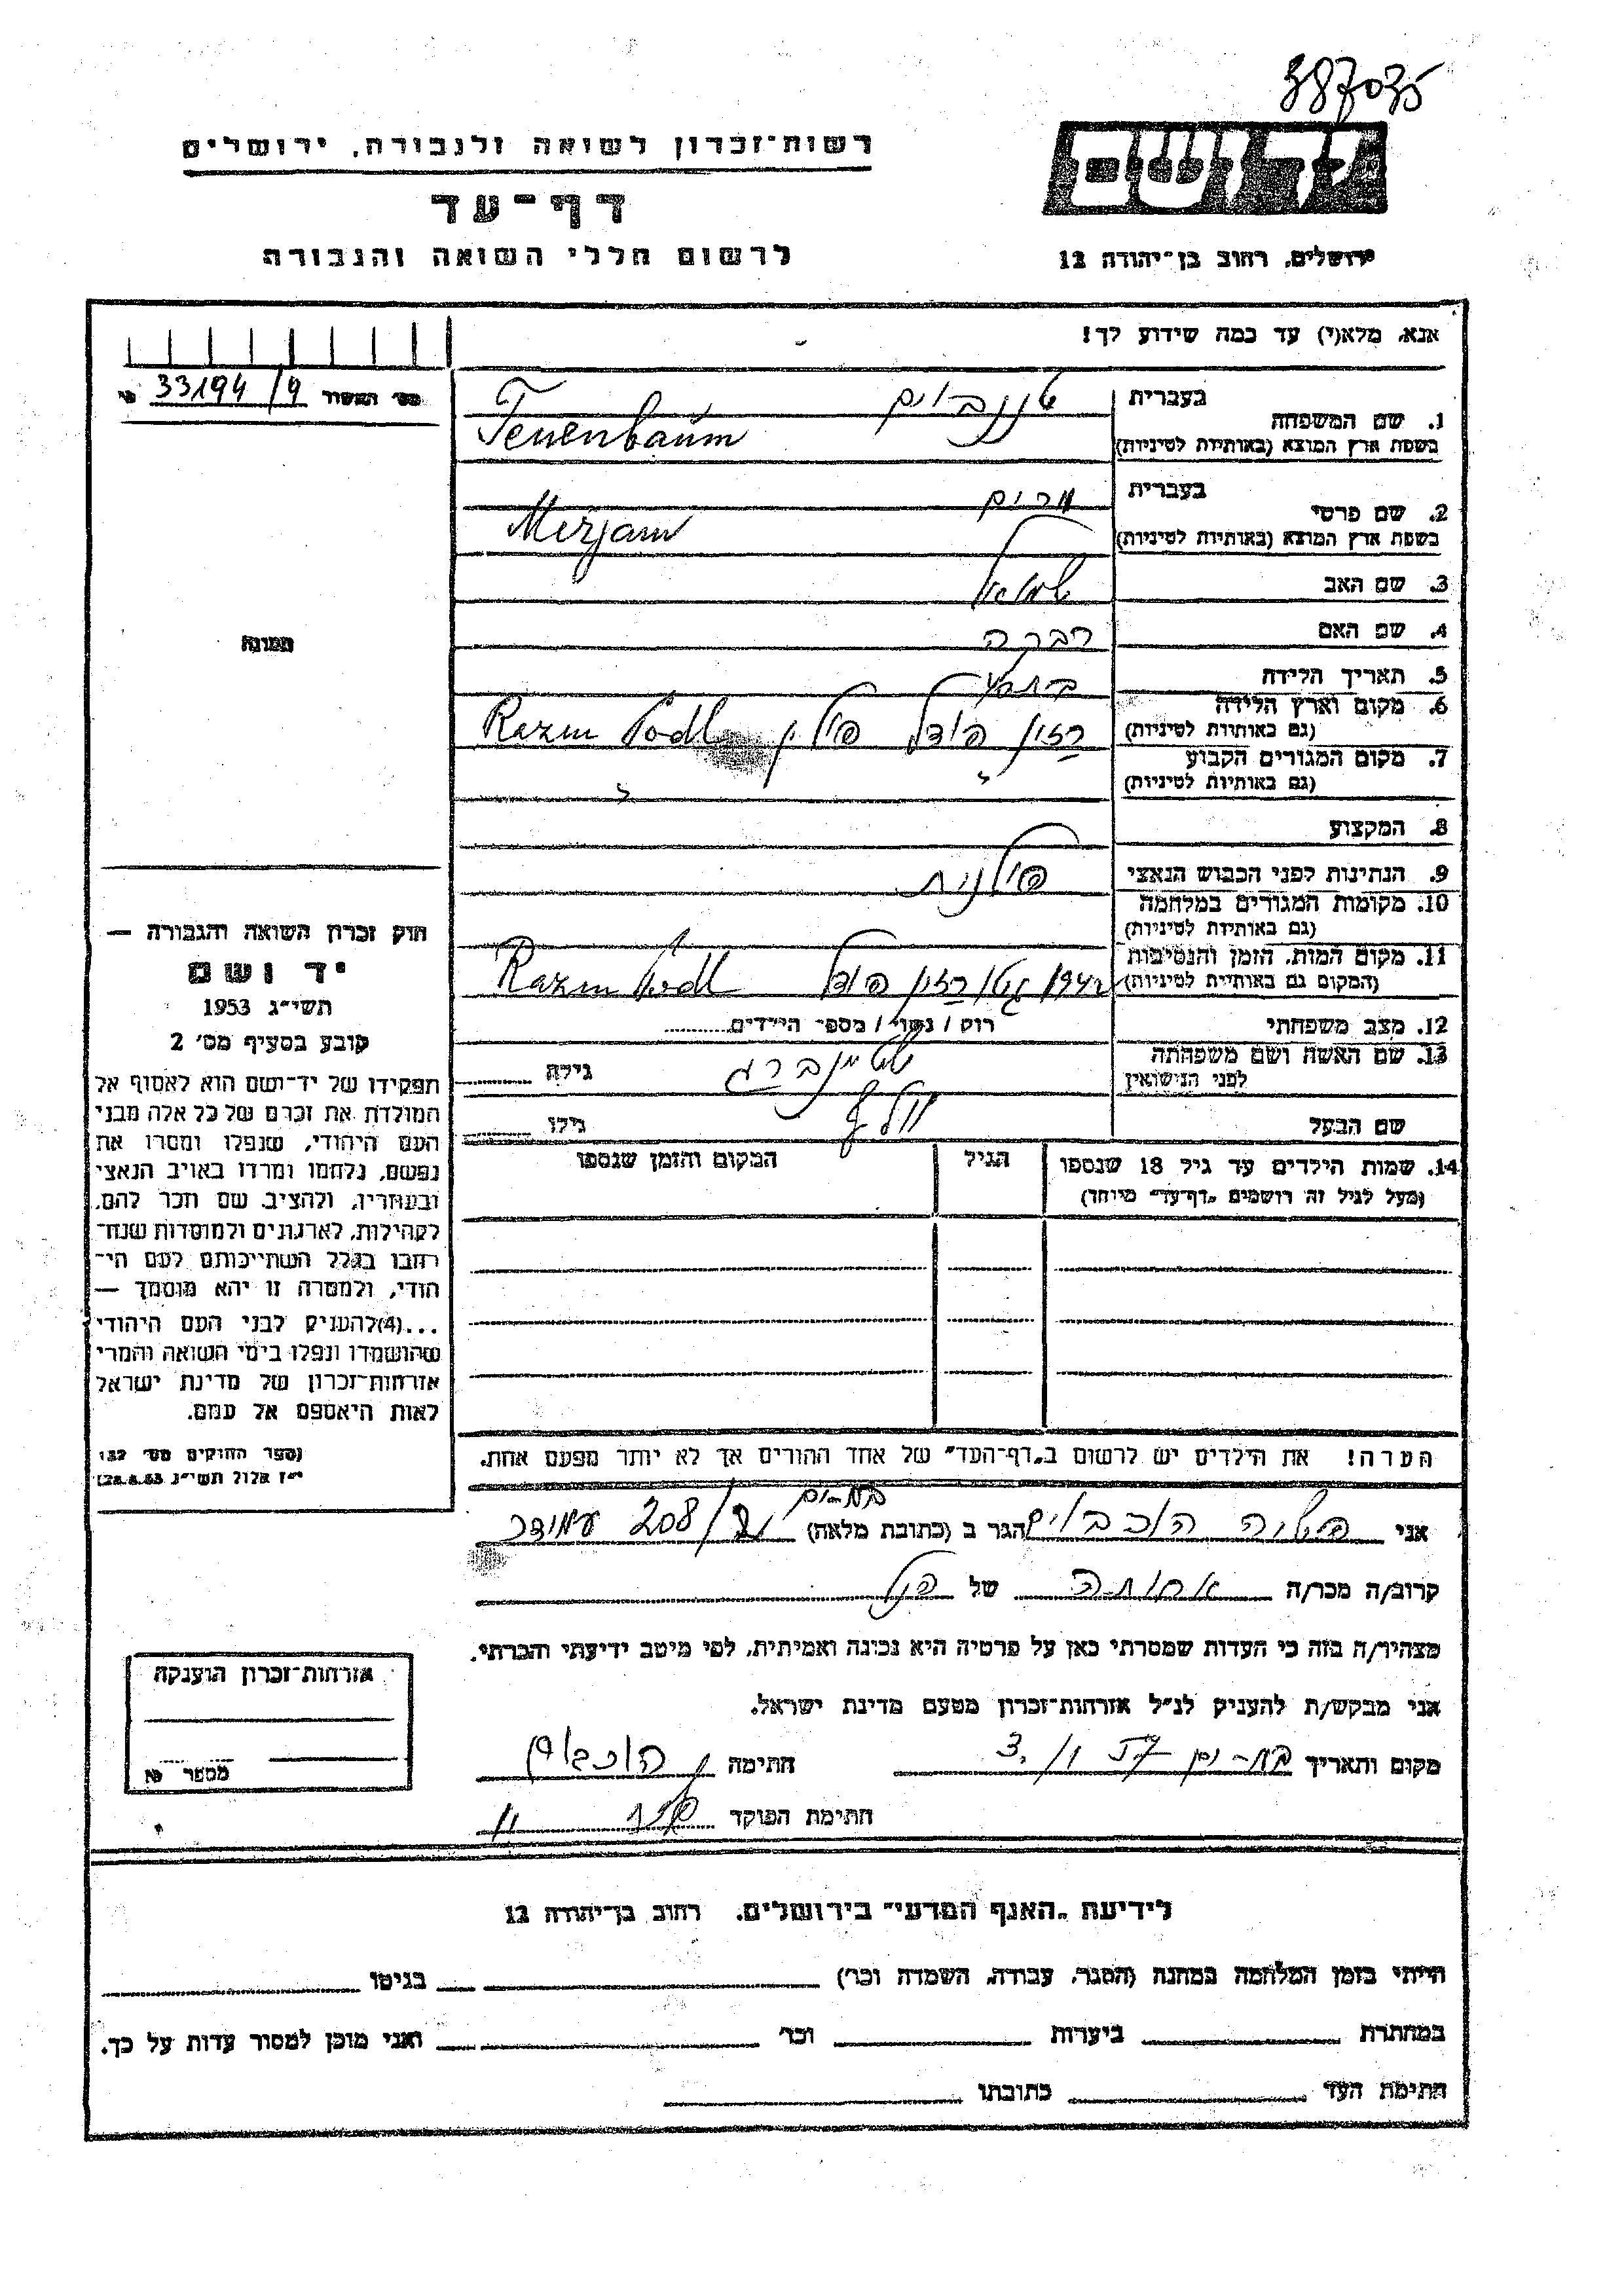 387035
רשות־זכרון לשואה ולגבורה, ירושלים
דף־עד
לרשום חללי השואה והגבורה
יד ושם
ירושלים, רחוב בן־יהודה 12
אנא, מלא(י) עד כמה שידוע לך!
מס׳ האשור 33194/9
1. שם המשפחה בעברית טננבוים
בשפת ארץ המוצא (באותיות לטיניות) Tenenbaum
2. שם פרטי בעברית מרים
בשפת ארץ המוצא (באותיות לטיניות) Mirjam
3. שם האב שמואל
4. שם האם רבקה
5. תאריך הלידה
6. מקום וארץ הלידה
(גם באותיות לטיניות) רזין פודל פולין Razin Podl
7. מקום המגורים הקבוע
(גם באותיות לטיניות)
8. המקצוע
9. הנתינות לפני הכבוש הנאצי פולנית
10. מקומות המגורים במלחמה
(גם באותיות לטיניות)
11. מקום המות, הזמן והנסיבות
(המקום גם באותיות לטיניות) 1942 גטו רזין פודל Razin Podl
12. מצב משפחתי רוק / נשוי / מספר הילדים
13. שם האשה ושם משפחתה
לפני הנישואין שטיינברג גילה
שם הבעל וולף גילו
14. שמות הילדים עד גיל 18 שנספו הגיל המקום והזמן שנספו
(מעל לגיל זה רושמים „דף־עד״ מיוחד)
תמונה
חוק זכרון השואה והגבורה —
יד ושם
תשי״ג 1953
קובע בסעיף מס׳ 2
תפקידו של יד־ושם הוא לאסוף אל
המולדת את זכרם של כל אלה מבני
העם היהודי, שנפלו ומסרו את
נפשם, נלחמו ומרדו באויב הנאצי
ובעוזריו, ולהציב שם וזכר להם,
לקהילות, לארגונים ולמוסדות שנח־
רבו בגלל השתייכותם לעם הי־
הודי, ולמטרה זו יהא מוסמך —
...(4)להעניק לבני העם היהודי
שהושמדו ונפלו בימי השואה והמרי
אזרחות־זכרון של מדינת ישראל
לאות היאספם אל עמם.
(ספר החוקים מס׳ 132
י״ז אלול תשי״ג 28.8.53)
הערה! את הילדים יש לרשום ב„דף־העד״ של אחד ההורים אך לא יותר מפעם אחת.
בת-ים
אני הוכבוים הגר ב (כתובת מלאה) 208/ עמידר
קרוב/ה מכר/ה אחותה של הנ״ל
מצהיר/ה בזה כי העדות שמסרתי כאן על פרטיה היא נכונה ואמיתית, לפי מיטב ידיעתי והכרתי.
אני מבקש/ת להעניק לנ״ל אזרחות־זכרון מטעם מדינת ישראל.
מקום ותאריך בת-ים חתימה הוכבוים
חתימת הפוקד
אזרחות־זכרון הוענקה
מספר
לידיעת „האגף המדעי״ בירושלים, רחוב בן־יהודה 12
הייתי בזמן המלחמה במחנה (הסגר, עבודה, השמדה וכר׳) בגיטו
במחתרת ביערות וכר׳ ואני מוכן למסור עדות על כך.
חתימת העד כתובתו